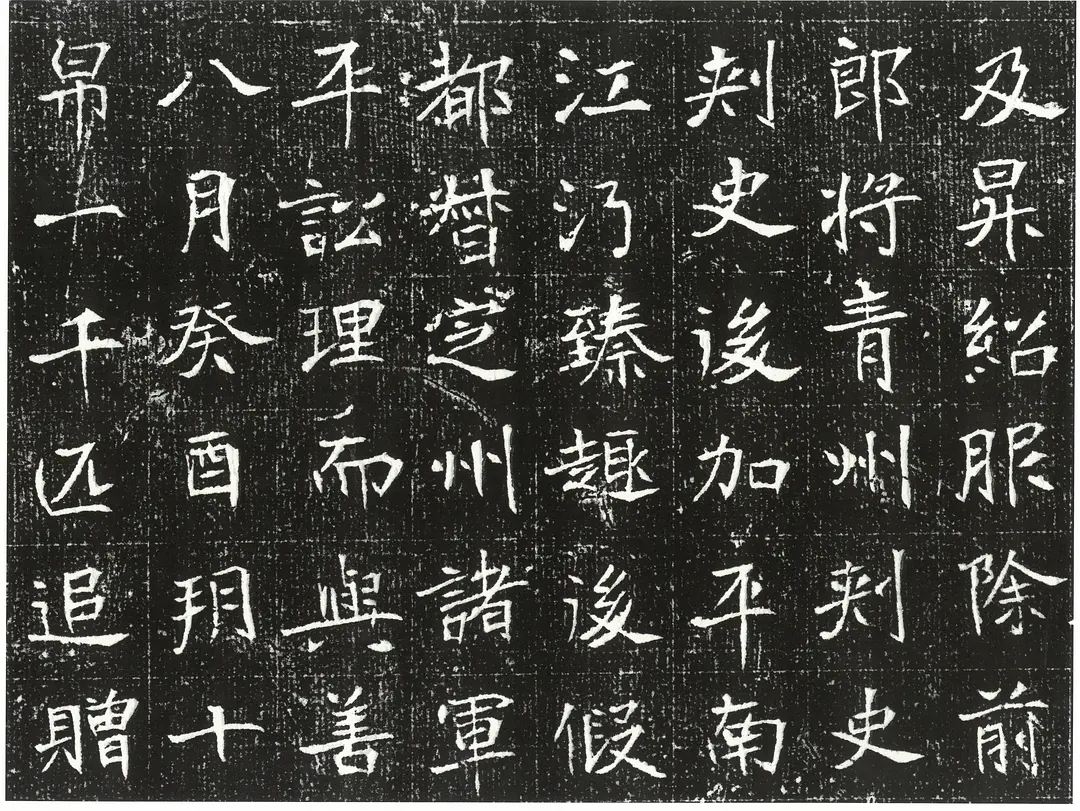 及昇紹服除前
郎將青州刾史
刾史後加平南
江沔臻趣後假
都督定州諸軍
平訟理而與善
八月癸酉朔十
帛一千匹追贈